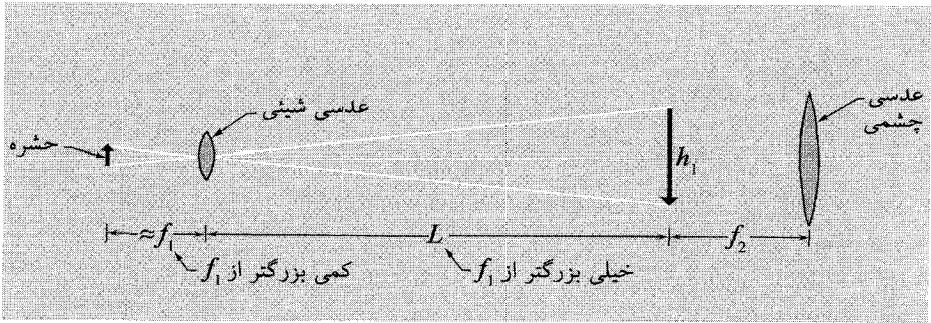 عدسی شیئی
عدسی
چشمی
حشره
h₁
≈f₁
L
f₂
کمی بزرگتر از f₁
خیلی بزرگتر از f₁